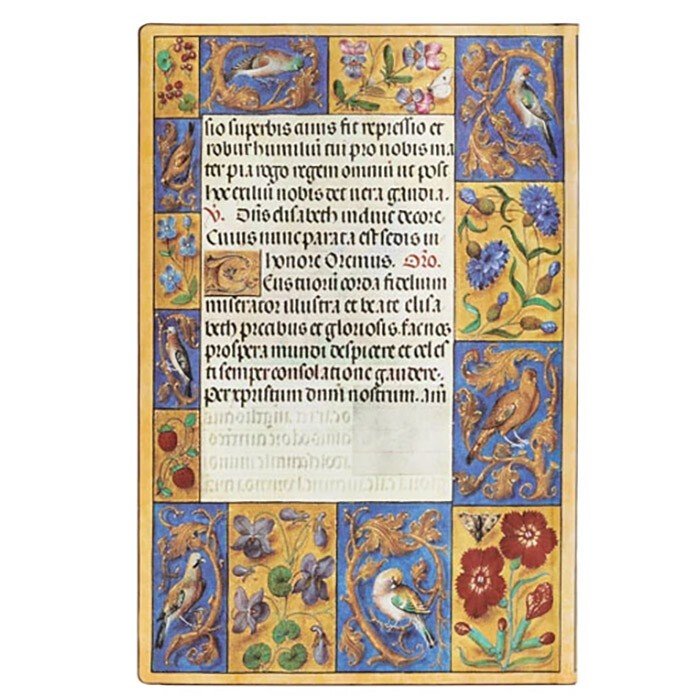 sio superbis cuius fit repressio et
robur humiliū cui pro nobis ma
ter pia rogo regem omniū ut post
hoc exiliū nobis det vera gaudia.
V. Dn̄s elisabeth induit decore
Cuius nunc parata est sedis in
honore Oremus. Oro.
Deus tuorū corda fidelium
miserator illustra et beate elisa
beth precibus et gloriosis. fac nos
prospera mundi despicere et celes
ti semper consolatione gaudere.
Per xpistum dn̄m nostrum. Am